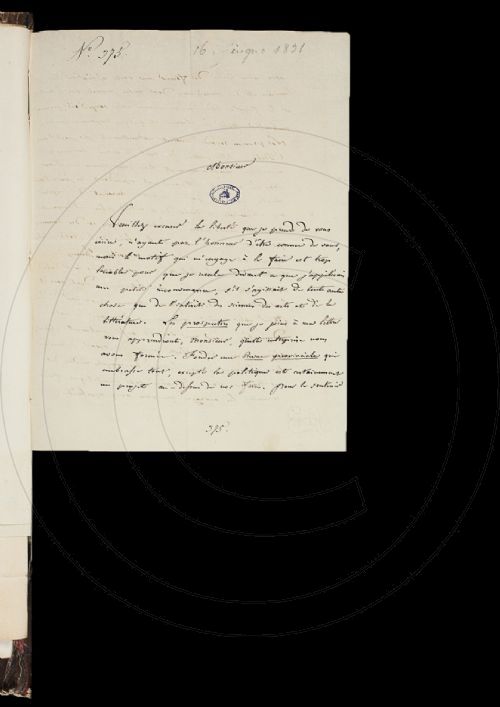 N.º 375.
16 Giugno 1831
Monsieur
Veuillez excuser la liberté que je prends de vous
écrire, n'ayant pas l'honneur d'être connu de vous,
mais le motif qui m'engage à le faire est trop
louable pour que je veuille devant ce que j'appellerai
une petite inconvenance, s'il s'agissait de toute autre
chose que de l'intérêt des sciences des arts et de la
littérature. Les prospectus que je joins à ma lettre
vous apprendront, Monsieur, quelle entreprise nous
avons formée. Fonder une Revue provinciale qui
embrasse tout, excepté la politique est certainement
un projet au-dessus de nos forces. Pour le soutenir
375.